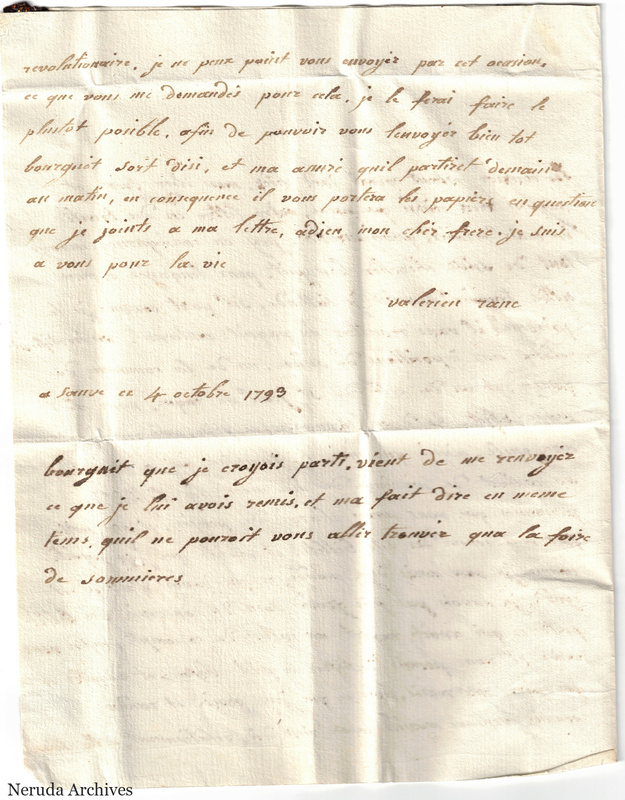 revolutionaire. je ne peux point vous envoyer par cet ocasion,
ce que vous me demandés pour cela. je le ferai faire le
plustot posible. afin de pouvoir vous lenvoyér bien tot
bourguit sort disi, et ma assuré quil partiret demain
au matin, en consequence il vous portera les papiers en question
que je joints a ma lettre, adieu mon cher frere. je suis
a vous pour la vie
valerien ranc
a Sauve ce 4 octobre 1793
bourguit que je croyois parti, vient de me renvoyér
ce que je lui avois remis, et ma fait dire en meme
tems, quil ne pouroit vous allér trouvér qua la foire
de sommieres
Neruda Archives